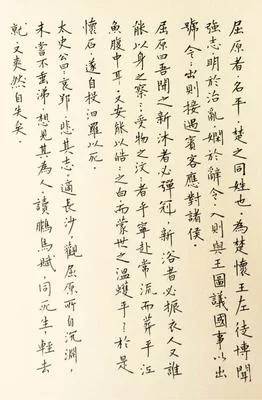 屈原者名平,楚之同姓也,為楚懷王左徒博聞
強志明於治亂嫻於辭令,入則與王圖議國事以出
號令,出則接遇賓客應對諸侯
屈原曰吾聞之新沐者必彈冠,新浴者必振衣人又誰
能以身之察,受物之汶者乎寧赴常流而葬乎江
魚腹中耳,又安能以皓之白而蒙世之溫蠖乎於是
懷石,遂自投汨羅以死。
太史公曰:哀郢,悲其志,適長沙,觀屈原所自沉淵,
未嘗不垂涕,想見其為人,讀鵩鳥賦,同死生,輕去
就,又爽然自失矣。